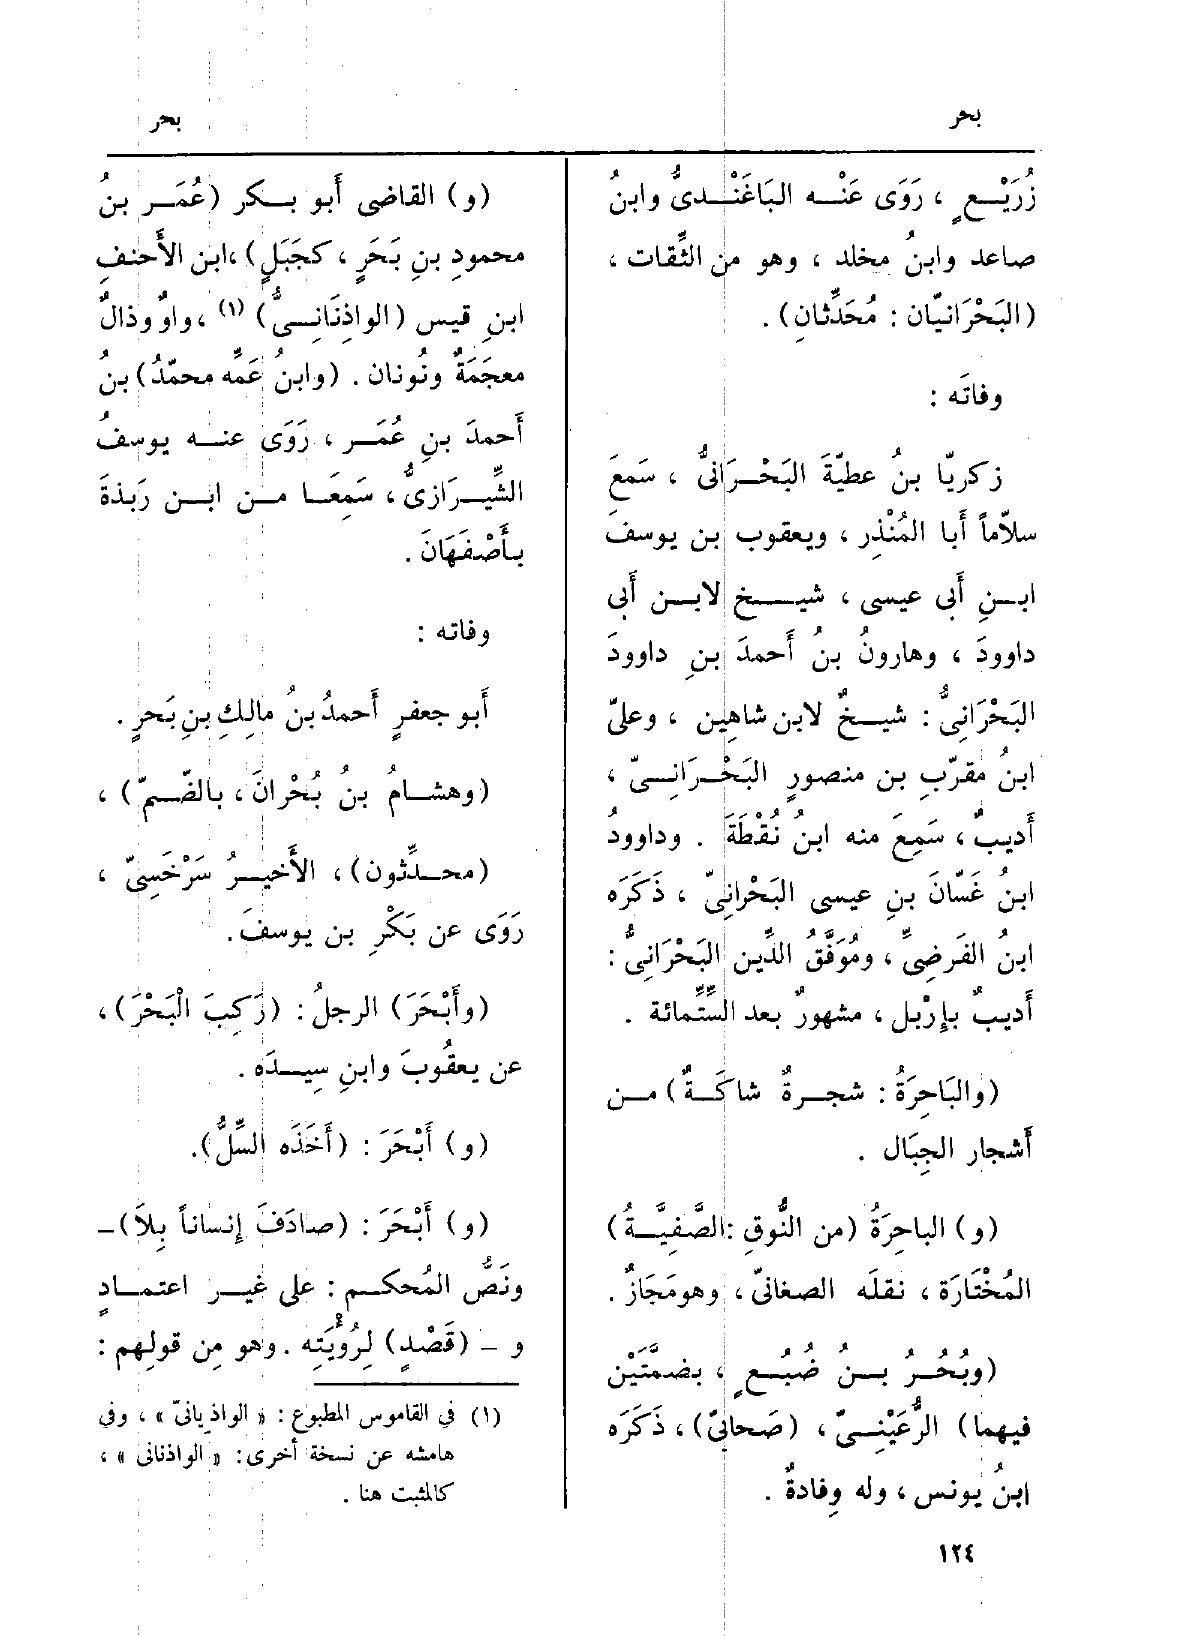 بحر
بحر
زُرَيْــعٍ ، رَوَى عَنْــه البَاغَنْــدىُّ وابنُ
صاعد وابنُ مخلد ، وهو من الثِّقات ،
(البَحْرَانيّان : مُحَدِّثانِ) .
وفاتَه :
زكريّا بنُ عطيّةَ البَحْـرَانىُّ ، سَمِعَ
سلاّماً أبا المُنْذِر ، ويعقوب بن يوسفَ
ابــنِ أَبى عيسى ، شيــــخ لابــن أَبى
داوودَ ، وهارونُ بنُ أَحمدَ بنِ داوودَ
البَحْرَانِىُّ : شيــخٌ لابن شاهِين ، وعلىّ
ابنُ مقرّبِ بن منصورٍ البَحْـرَانِــىّ ،
أَديبٌ ، سَمِعَ منه ابنُ نُقْطَةَ . وداوودُ
ابنُ غَسّانَ بنِ عيسى البَحْرانِىّ ، ذَكَرَه
ابنُ الفَرضِىِّ ، ومُوَفَّقُ الدِّين البَحْرَانِىُّ :
أَديبٌ بإِرْبِل ، مشهورٌ بعد السِّتِّمائة .
(والبَاحِرَةُ : شجــرةٌ شاكَــةٌ) مــن
أَشجار الجِبَال .
(و) الباحِرَةُ (من النُّوقِ : الصَّفِيَّــةُ)
المُخْتَارَة ، نقلَه الصغانىّ ، وهو مَجَازٌ .
(وبُحُــرُ بــنُ ضُبُــعٍ ، بضمَّتَيْن
فيهما) الرُّعَيْنِــىّ ، (صَحابىّ) ، ذَكَرَه
ابنُ يونس ، وله وِفادةٌ .
(و) القاضى أَبو بــكر (عُمَــر بنُ
محمودِ بنِ بَحَرٍ ، كجَبَلٍ) ، ابن الأَحنفِ
ابنِ قيس (الواذِنَانِــىُّ) (١) ، واوٌ وذالٌ
معجَمَةٌ ونُونان . (وابنُ عَمِّه محمّدُ) بنُ
أَحمدَ بنِ عُمَــر ، رَوَى عنــه يوسفُ
الشِّيــرَازىُّ ، سَمِعَــا مــن ابــن رَبذةَ
بأَصْفَهَانَ .
وفاته :
أَبو جعفرٍ أَحمدُ بنُ مالِكِ بنِ بَحرٍ .
(وهشــامُ بنُ بُحْرانَ ، بالضّــمّ) ،
(محــدِّثون) ، الأَخيــرُ سَرْخَسِىّ ،
رَوَى عن بَكْرِ بن يوسفَ .
(وأَبْحَرَ) الرجلُ : (رَكِبَ الْبَحْرَ) ،
عن يعقُوبَ وابنِ سِيــدَه .
(و) أَبْحَرَ : (أَخَذَه السِّلُّ) .
(و) أَبْحَرَ : (صادَفَ إِنساناً بِلاَ) –
ونَصُّ المُحكــم : على غيــر اعتمــادٍ
و – (قَصْدٍ) لِرُؤْيَتِه . وهو مِن قولِهم :
(١) فى القاموس المطبوع : « الواذِيانىّ » ، وفى
هامشه عن نسخة أخرى : « الواذنانى » ،
كالمثبت هنا .
١٢٤